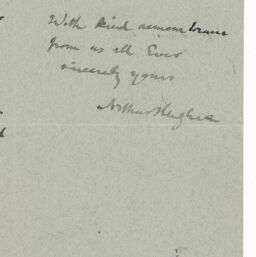 With kind remembrance
from us all Ever
sincerely yours
Arthur Hughes